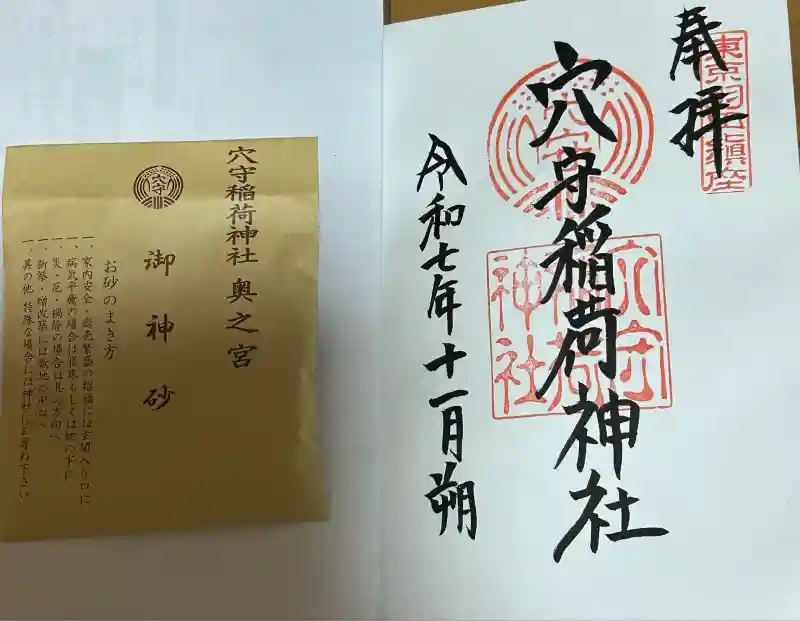 奉拝
東京羽田鎮座
穴守稲荷神社
穴守
穴守稲荷神社
令和七年十一月朔
穴守稲荷神社 奥之宮
穴守
御神砂
お砂のまき方
一、家内安全・商売繁盛の招福には玄関入り口に
一、病気平癒の場合は寝床もしくは枕の下に
一、災・厄・禍除の場合は其の方向へ
一、新築・増改築には敷地の中心へ
一、其の他 特殊な場合には神社にお尋ね下さい